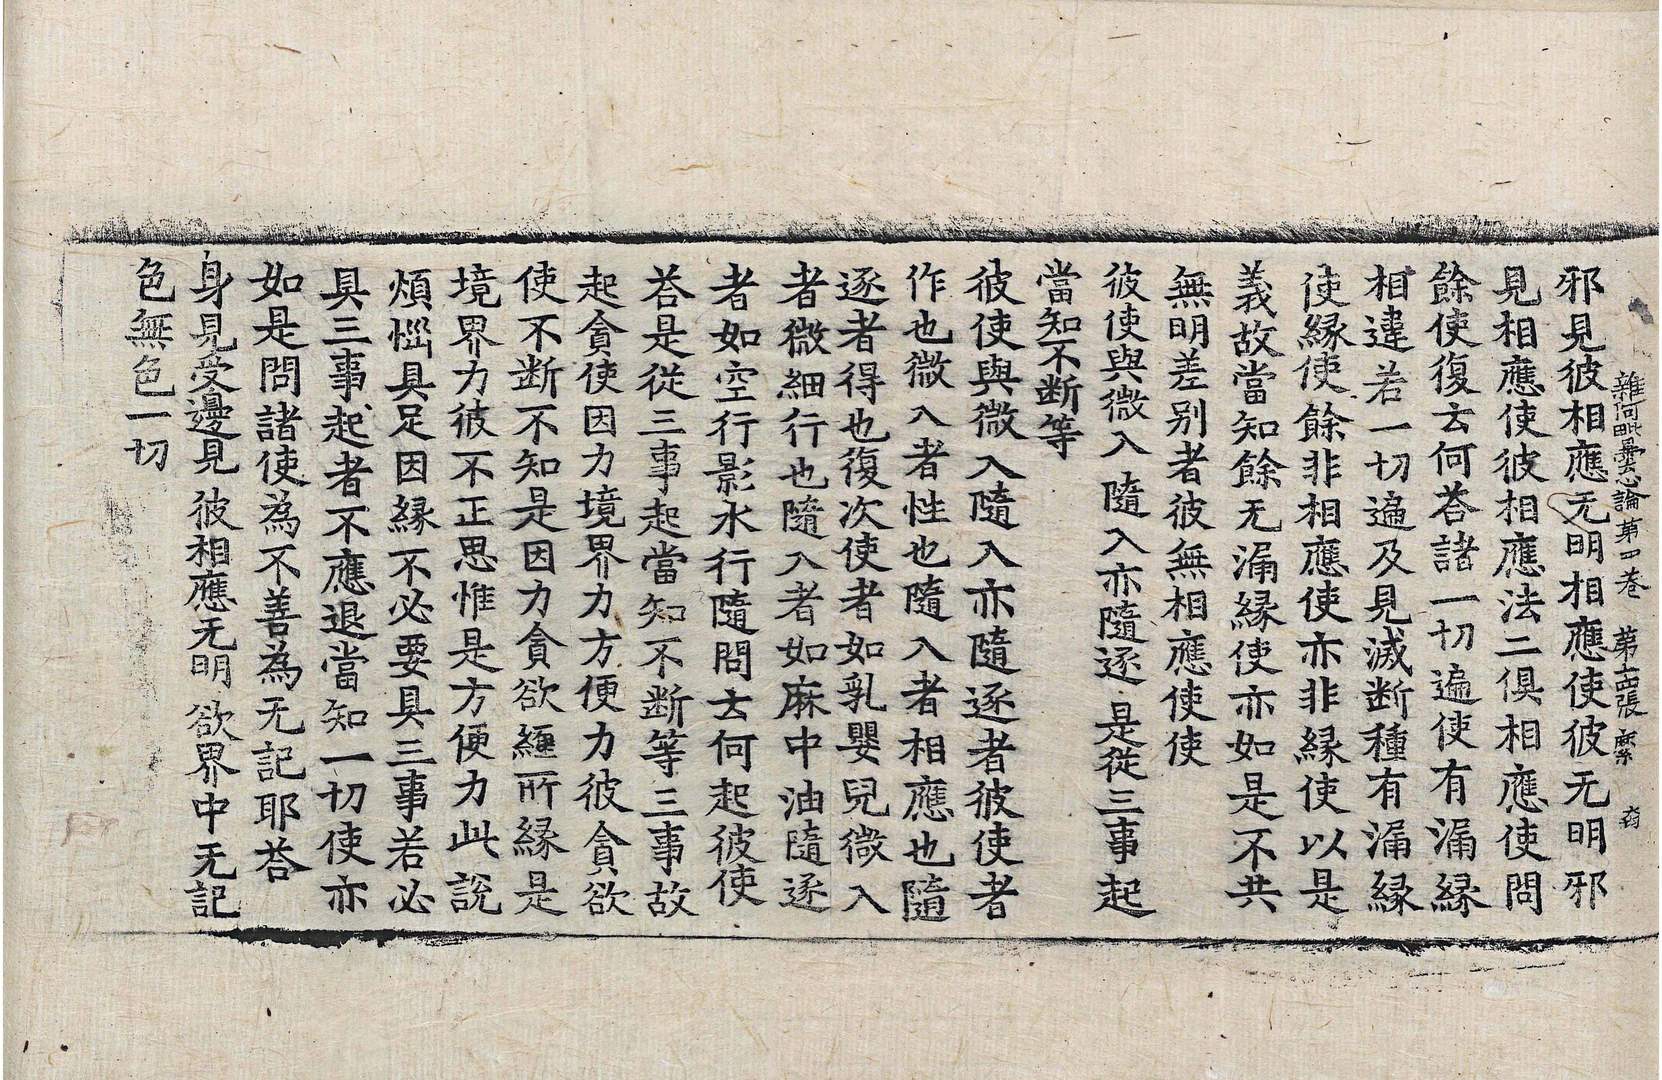 雜阿毗曇心論第四卷　第十六張　縻
邪見彼相應无明相應使彼无明邪
見相應使彼相應法二俱相應使問
餘使復云何荅諸一切遍使有漏緣
相違若一切遍及見滅断種有漏緣
使縁使餘非相應使亦非縁使以是
義故當知餘无漏縁使亦如是不共
無明差别者彼無相應使使
彼使與微入　隨入亦隨逐　是從三事起
當知不断等
彼使與微入隨入亦隨逐者彼使者
作也微入者性也隨入者相應也隨
逐者得也復次使者如乳嬰兒微入
者微細行也隨入者如麻中油隨逐
者如空行影水行隨問云何起彼使
荅是從三事起當知不断等三事故
起貪使因力境界力方便力彼貪欲
使不断不知是因力貪欲纏所縁是
境界力彼不正思惟是方便力此說
煩惱具足因縁不必要具三事若必
具三事起者不應退當知一切使亦
如是問諸使為不善為无記耶荅
身見受邊見　彼相應无明　欲界中无記
色無色一切